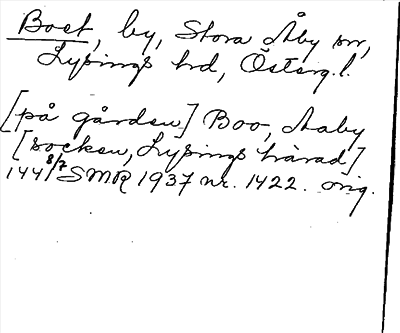 Boet, by, Stora Åby sn,
Lysings hd, Österg.l.
[på gården] Boo, Aaby
[socken, Lysings härad]
1441 8/7 SMR 1937 nr. 1422. orig.